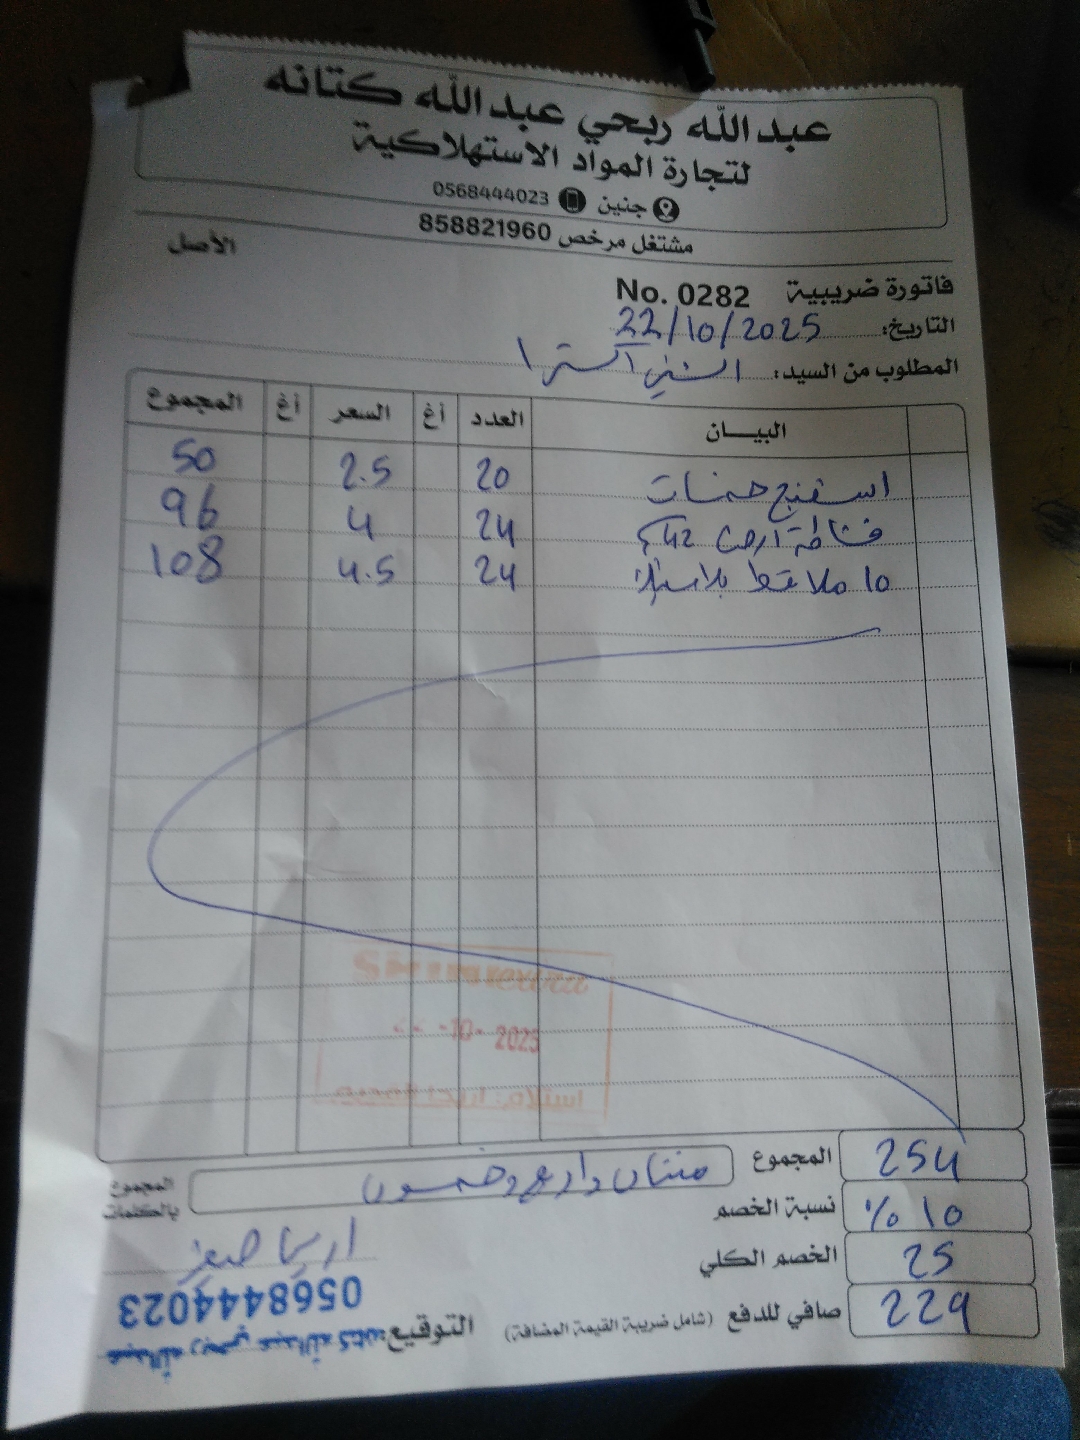 عبد الله ربحي عبد الله كتانه
لتجارة المواد الاستهلاكية
جنين 0568444023
مشتغل مرخص 858821960
الأصل
فاتورة ضريبية No. 0282
التاريخ: 22/10/2025
المطلوب من السيد: السني اكسترا
البيـــان العدد أغ السعر أغ المجموع
اسفنج خمسات 20 2.5 50
24 4 96
10 ملاقط بلاستيك 24 4.5 108
10- 2025
المجموع 254
المجموع بالكلمات مئتان واربع وخمسون
نسبة الخصم 10 %
الخصم الكلي 25
صافي للدفع (شامل ضريبة القيمة المضافة) 229
التوقيع:
0568444023
عبدالله ربحي عبدالله كتانه